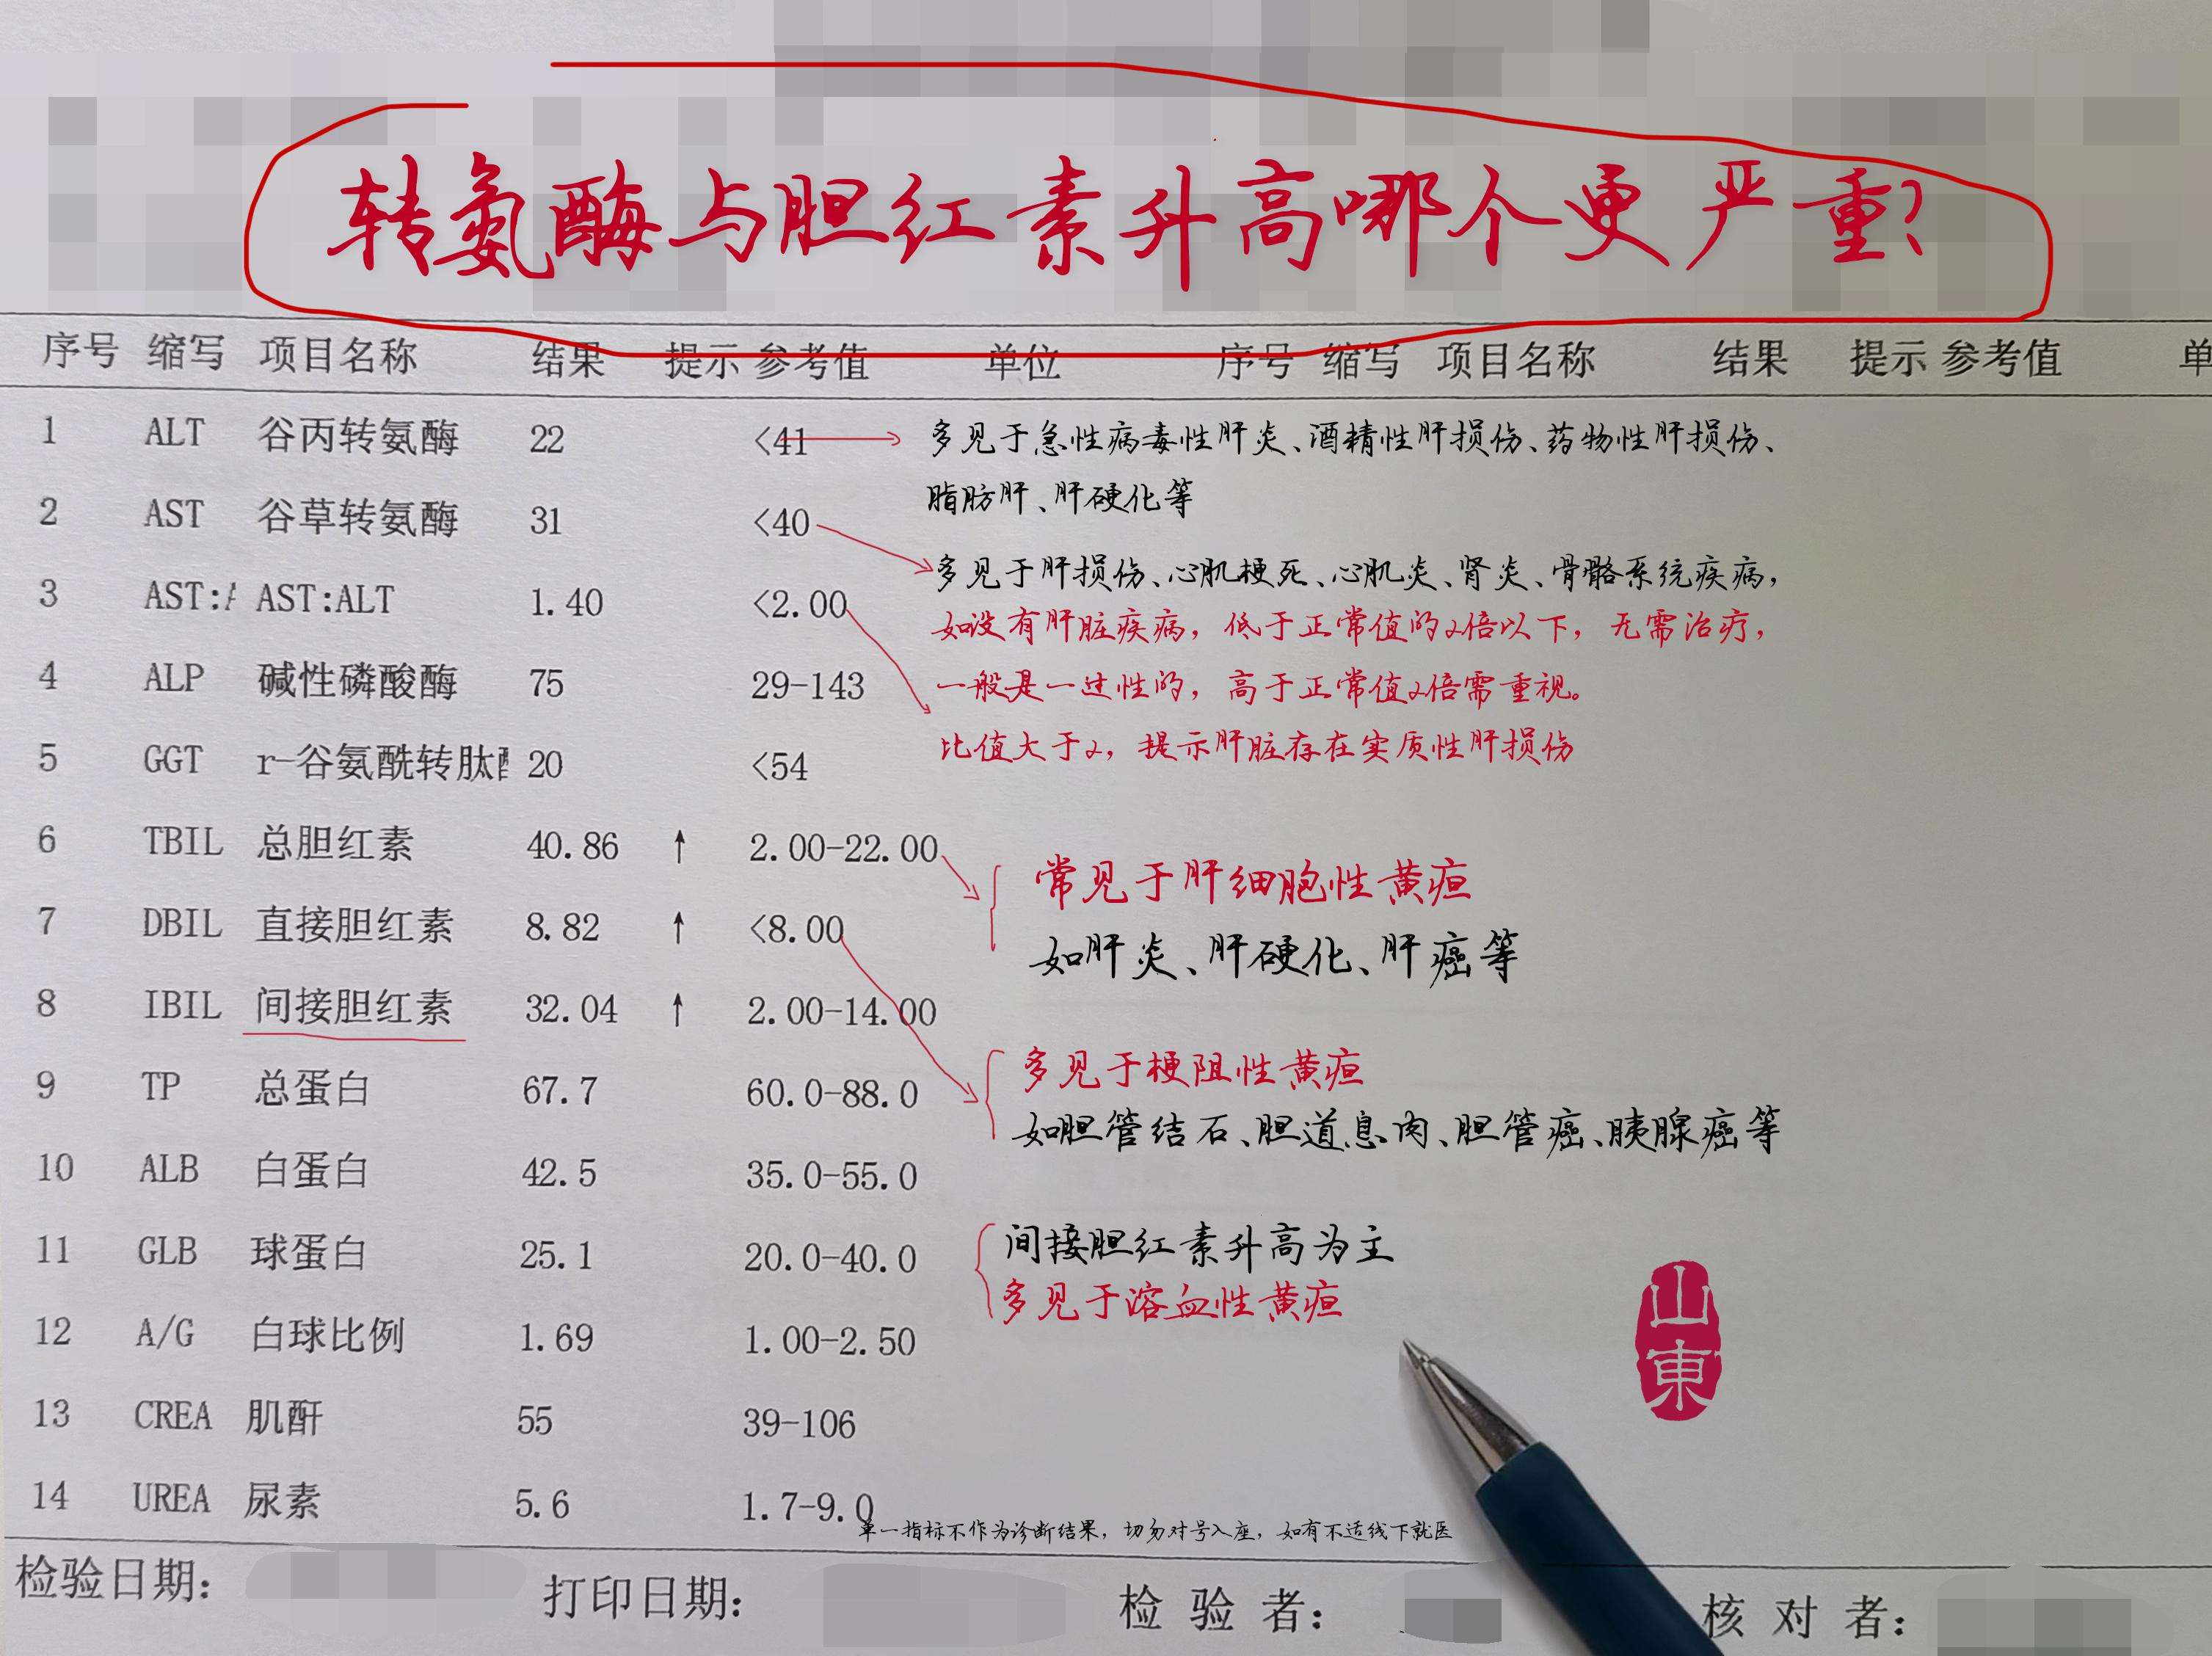 转氨酶与胆红素升高哪个更严重?
序号 缩写 项目名称 结果 提示 参考值 单位 序号 缩写 项目名称 结果 提示 参考值 单
1 ALT 谷丙转氨酶 22 <41
多见于急性病毒性肝炎、酒精性肝损伤、药物性肝损伤、
脂肪肝、肝硬化等
2 AST 谷草转氨酶 31 <40
多见于肝损伤、心肌梗死、心肌炎、肾炎、骨骼系统疾病,
如没有肝脏疾病,低于正常值的2倍以下,无需治疗,
一般是一过性的,高于正常值2倍需重视。
3 AST:A AST:ALT 1.40 <2.00
比值大于2,提示肝脏存在实质性肝损伤
4 ALP 碱性磷酸酶 75 29-143
5 GGT r-谷氨酰转肽酶 20 <54
6 TBIL 总胆红素 40.86 ↑ 2.00-22.00
常见于肝细胞性黄疸
如肝炎、肝硬化、肝癌等
7 DBIL 直接胆红素 8.82 ↑ <8.00
多见于梗阻性黄疸
如胆管结石、胆道息肉、胆管癌、胰腺癌等
8 IBIL 间接胆红素 32.04 ↑ 2.00-14.00
间接胆红素升高为主
多见于溶血性黄疸
9 TP 总蛋白 67.7 60.0-88.0
10 ALB 白蛋白 42.5 35.0-55.0
11 GLB 球蛋白 25.1 20.0-40.0
12 A/G 白球比例 1.69 1.00-2.50
13 CREA 肌酐 55 39-106
14 UREA 尿素 5.6 1.7-9.0
单一指标不作为诊断结果,切勿对号入座,如有不适线下就医
山東
检验日期: 打印日期: 检验者: 核对者: